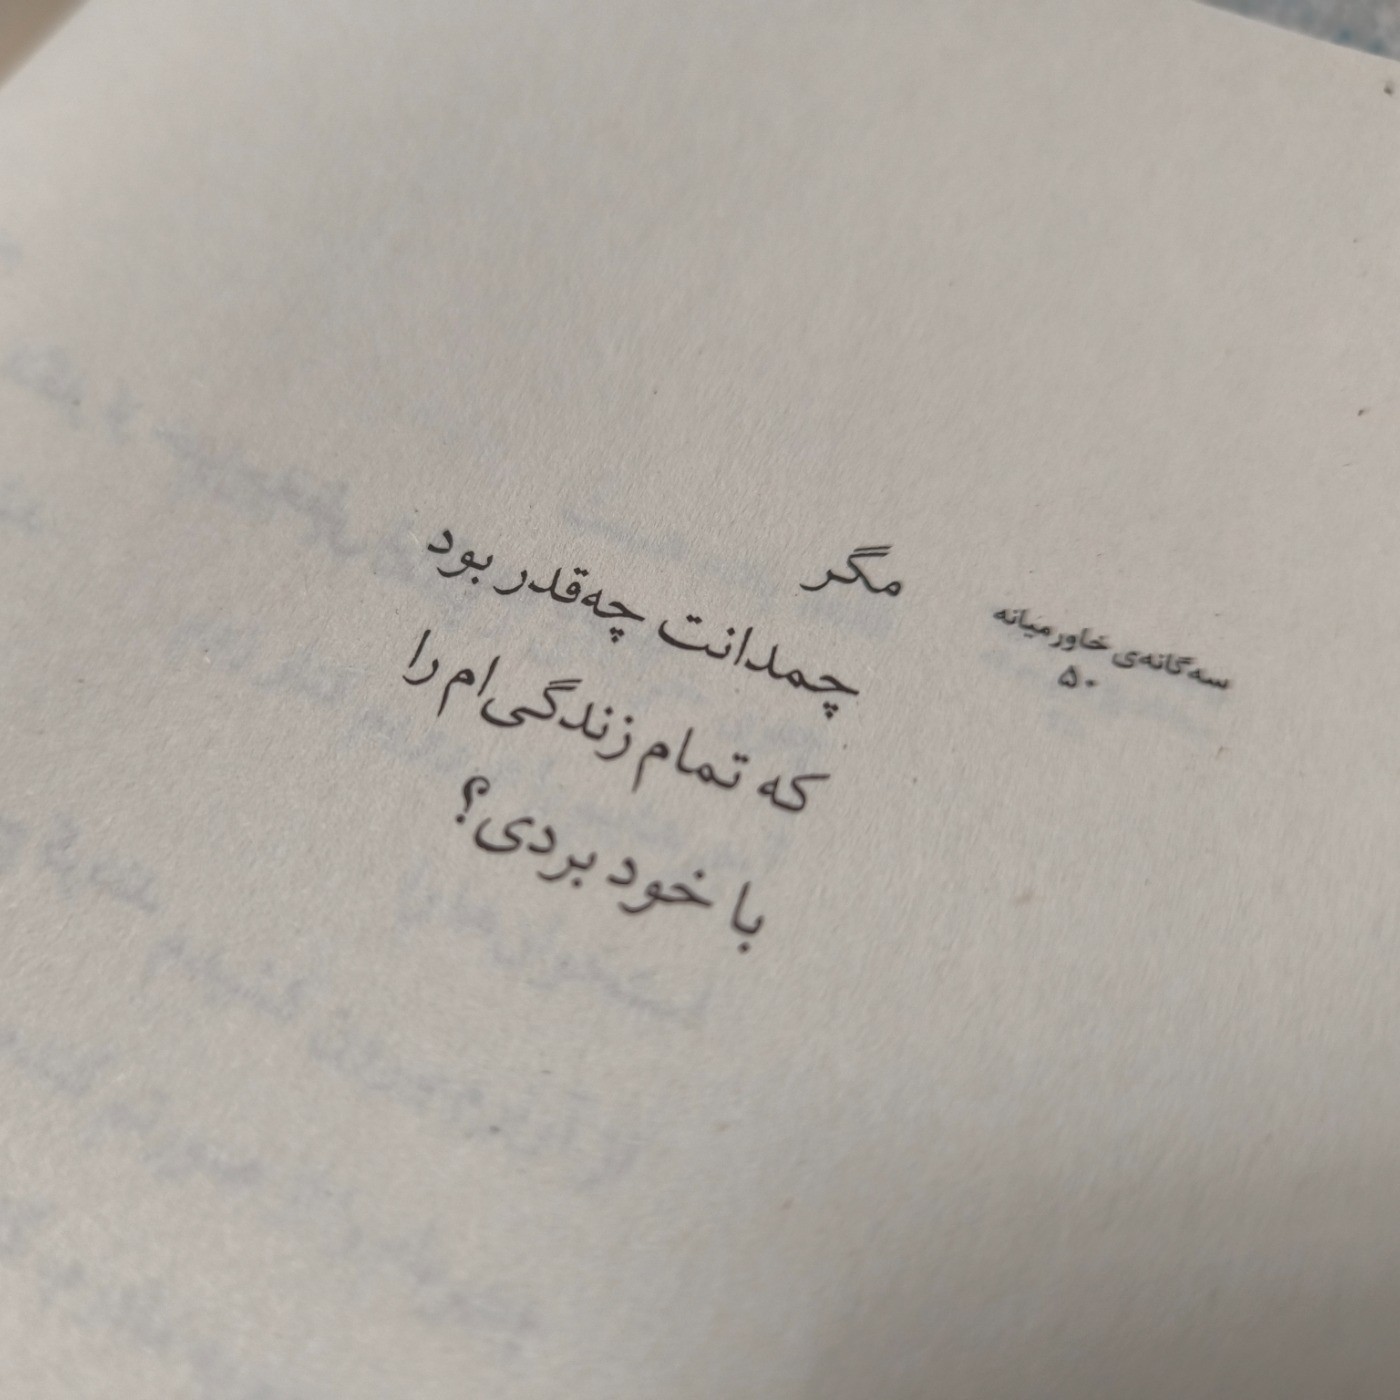 سه‌گانه‌ی خاورمیانه
۵۰
مگر
چمدانت چه‌قدر بود
که تمام زندگی‌ام را
با خود بردی؟